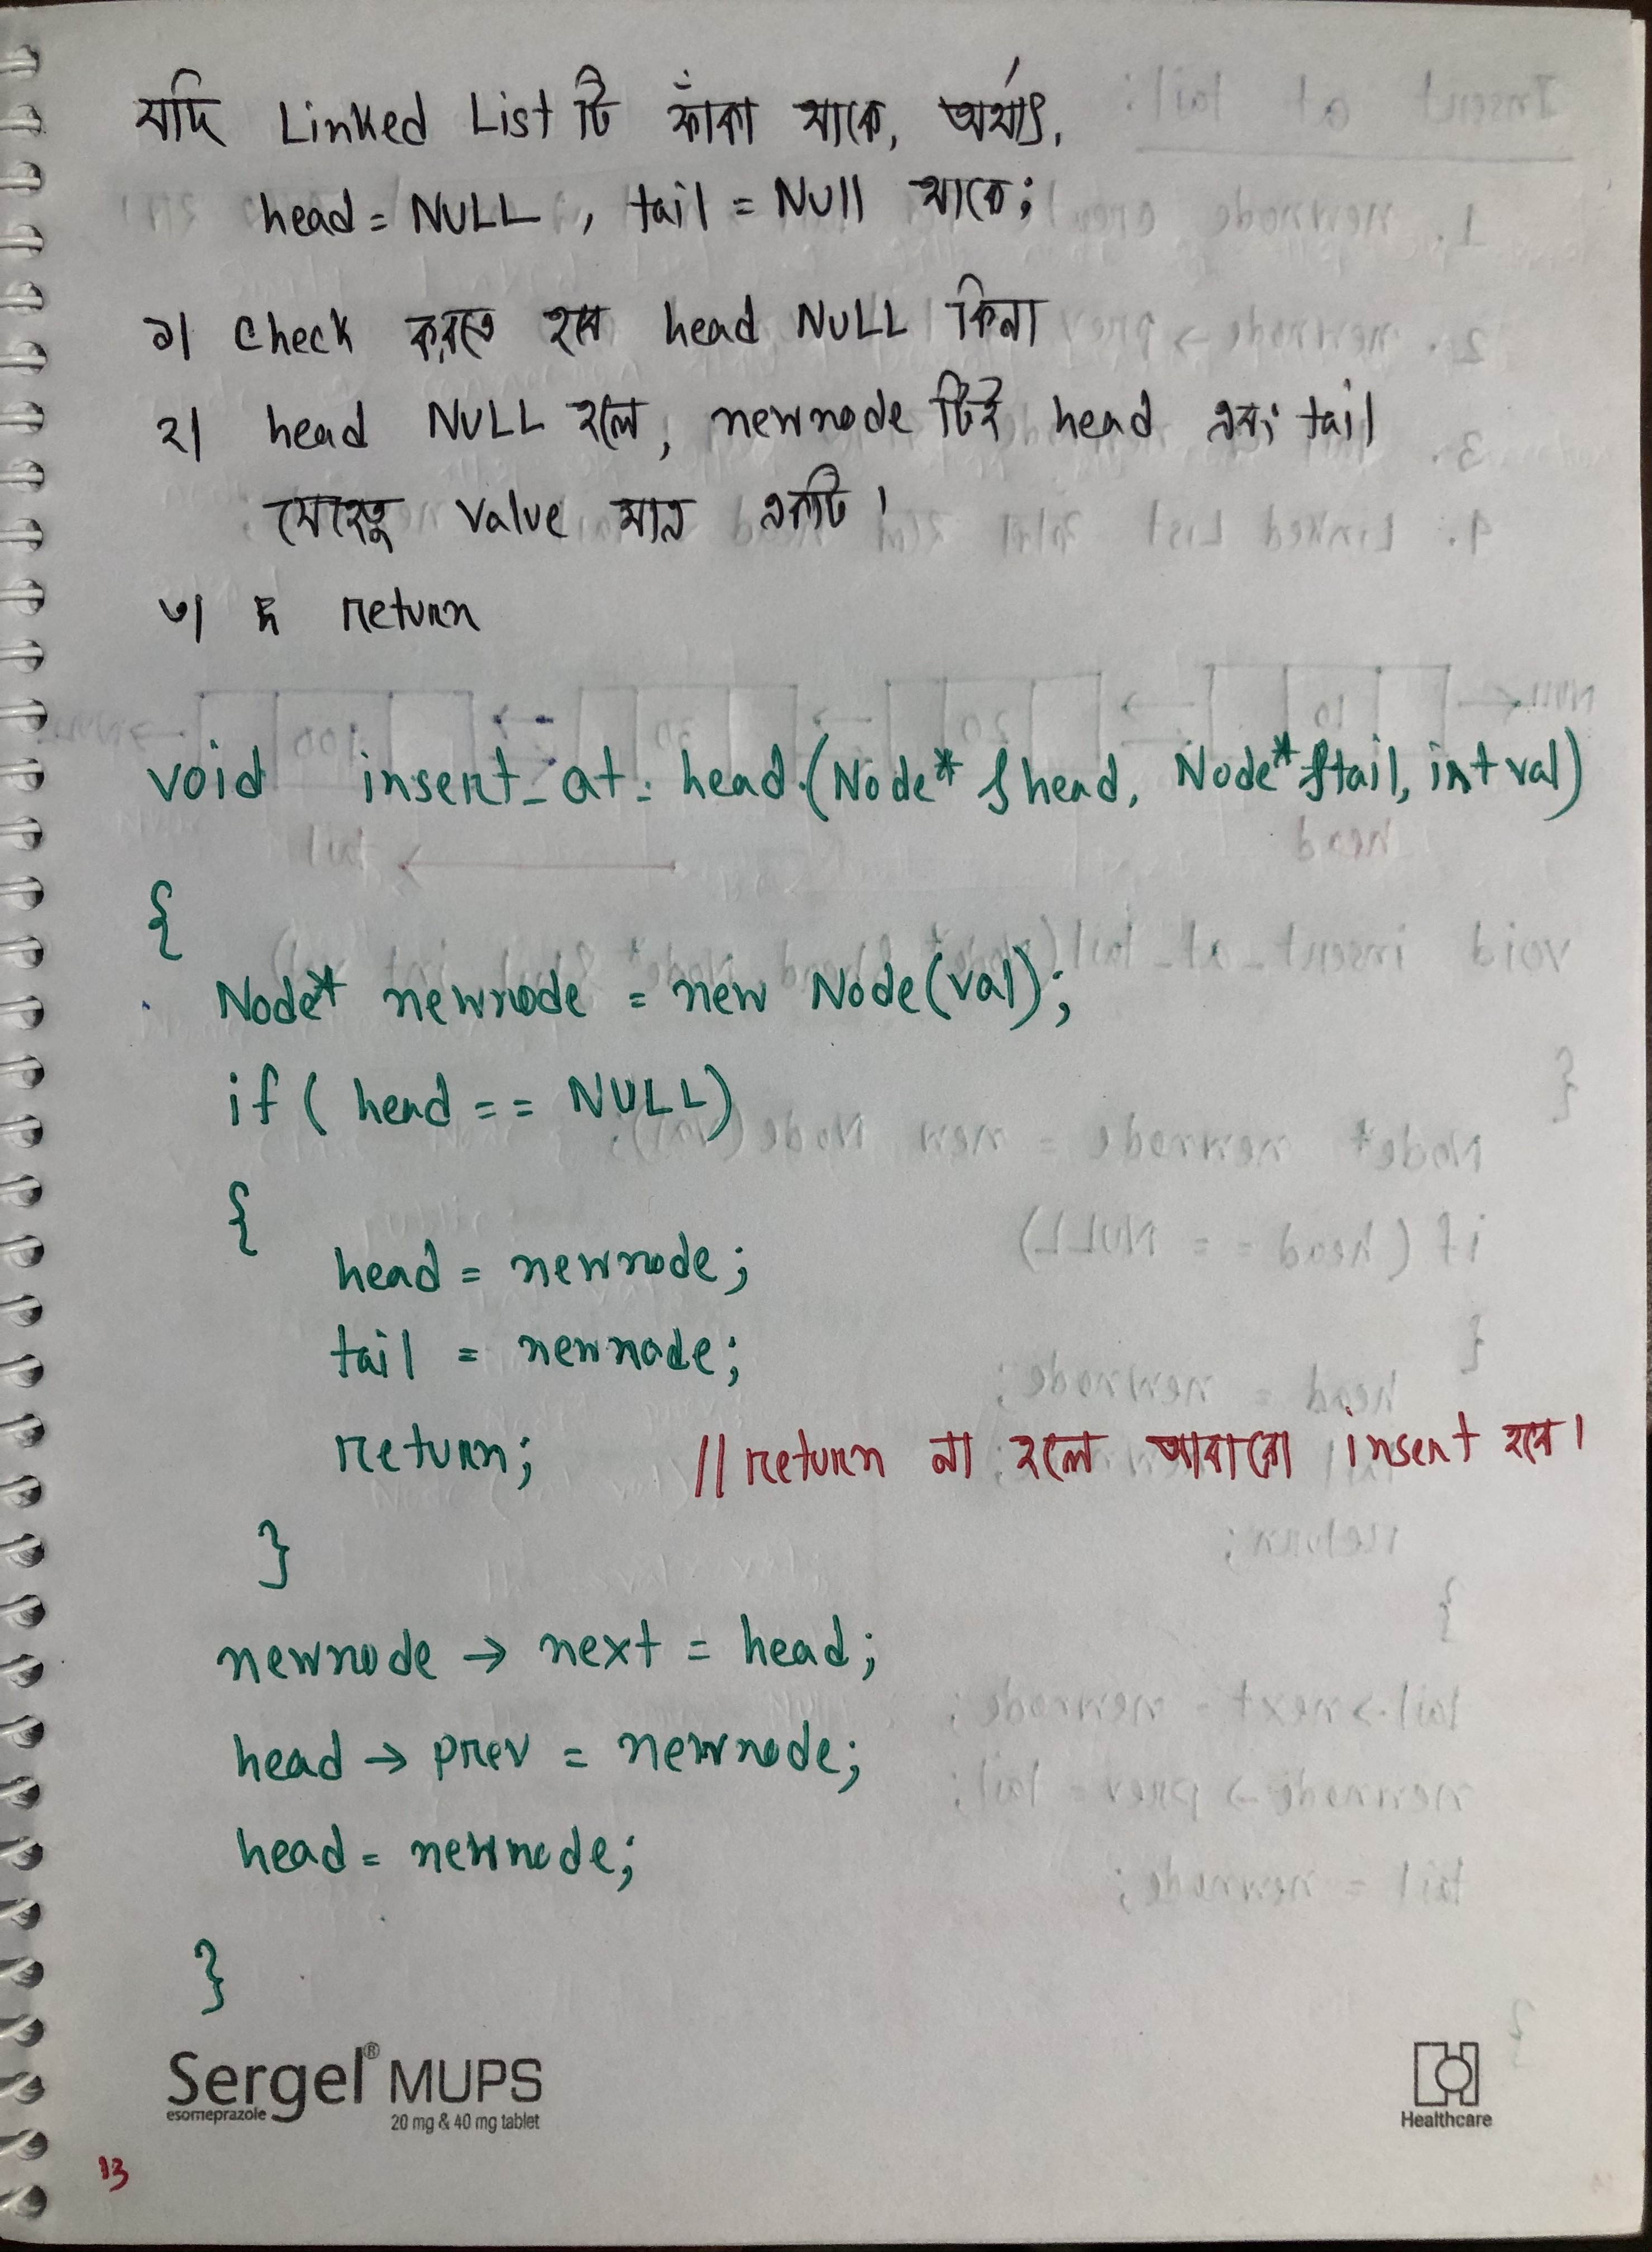 যদি Linked List টি ফাঁকা থাকে, অর্থাৎ,
head = NULL, tail = NUll থাকে;
১। Check করতে হবে head NULL কিনা
২। head NULL হলে, newnode টিই head এবং tail
যেহেতু value মাত্র একটি।
৩। return
void insert_at_head (Node* &head, Node* &tail, int val)
{
Node* newnode = new Node(val);
if ( head == NULL)
{
head = newnode;
tail = newnode;
return; // return না হলে আবারো insert হবে।
}
newnode → next = head;
head → prev = newnode;
head = newnode;
}
Sergel® MUPS
esomeprazole 20 mg & 40 mg tablet
Healthcare
13